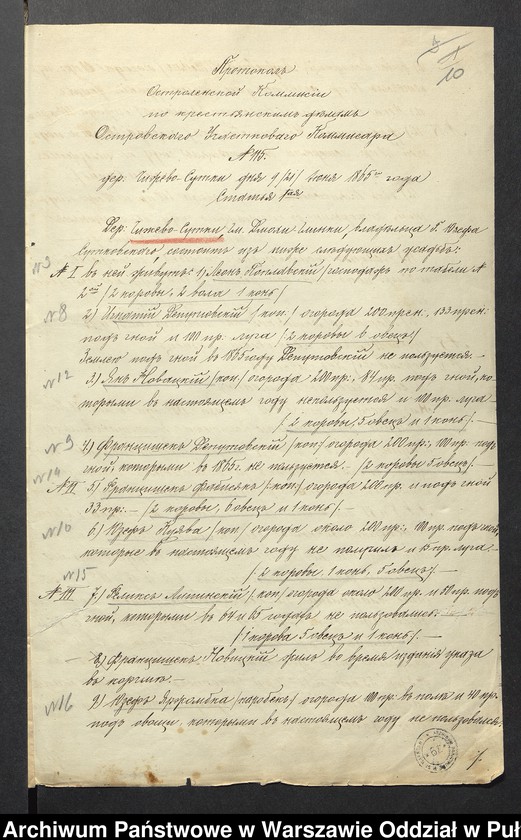 10
Протоколъ
Остроленской Коммисіи
по крестьянскимъ дѣламъ
Островскаго Участковаго Коммисара
№ 115.
дер. Чижево-Сутки дня 9/21 Іюня 1865 года
Статья 1ая
Дер. Чижево-Сутки гм. Дмохи Глинки владѣльца Г. Юзефа
Сутковскаго состоитъ изъ ниже слѣдующихъ усадьбъ:
№ 3
№ I въ ней живутъ: 1) Леонъ Поплавскій /господарь по табели №
2ой/ /2 коровы, 2 вола 1 конь/
№ 8
2) Игнатій Репутовскій /коп/ огорода 200 прен., 133 прен:
подъ гной и 100 пр. луга /2 коровы 6 овецъ/
Землею подъ гной въ 1865 году Репутовскій не пользуется. —
№ 12
3) Янъ Новацкій /коп/ огорода 200 пр., 84 пр. подъ гной, ко-
торыми въ настоящемъ году не пользуется и 100 пр. луга
/2 коровы, 5 овецъ и 1 конь/. —
№ 9
4) Францишекъ Репутовскій /коп/ огорода 200 пр:, 100 пр. подъ
гной, которыми въ 1865 г. не пользуется. — /2 коровы 5 овецъ/. —
№ 14
№ II 5) Францишекъ /коп/ огорода 200 пр. и подъ гной
33 пр: — /2 коровы, 6 овецъ и 1 конь/. —
№ 10
6) Юзефъ Куява /коп/ огорода около 200 пр:, 100 пр. подъ гной,
которые въ настоящемъ году не и пр. луга. —
/2 коровы, 1 конь, 5 овецъ/. —
№ 15
№ III 7) Феликсъ Липинскій /коп/ огорода около 200 пр. и 80 пр. подъ
гной, которыми въ 64 и 65 годахъ не пользовались.
/1 корова 5 овецъ и 1 конь/. —
8) Францишекъ Новицкій жилъ во время изданія указа
въ корчмѣ. —
№ 16
9) Юзефъ /паробекъ/ огорода 100 пр: въ полѣ и 40 пр.
подъ овощи, которыми въ настоящемъ году не пользовался.
Archiwum Państwowe w Warszawie Oddział w Puł